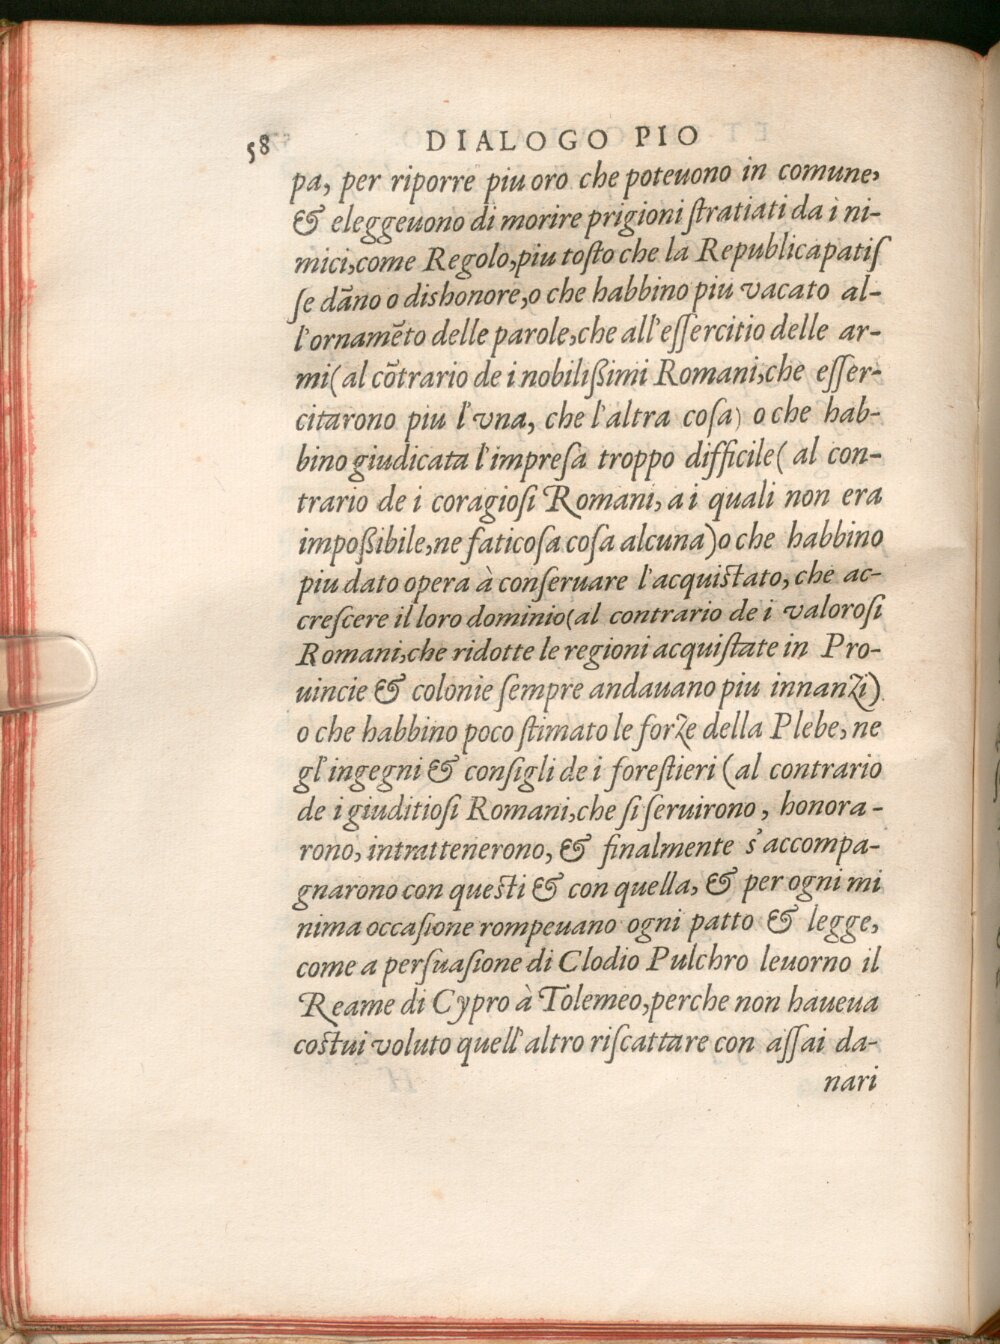 58 DIALOGO PIO
pa, per riporre piu oro che poteuono in comune,
& eleggeuono di morire prigioni ſtratiati da i ni-
mici,come Regolo,piu toſto che la Republica patiſ
ſe dãno o dishonore,o che habbino piu vacato al-
l'ornamẽto delle parole,che all'eſſercitio delle ar-
mi(al cõtrario de i nobilißimi Romani,che eſſer-
citarono piu l'vna, che l'altra coſa) o che hab-
bino giudicata l'impreſa troppo difficile( al con-
trario de i coragioſi Romani, a i quali non era
impoßibile,ne faticoſa coſa alcuna)o che habbino
piu dato opera à conſeruare l'acquiſtato, che ac-
creſcere il loro dominio(al contrario de i valoroſi
Romani,che ridotte le regioni acquiſtate in Pro-
uincie & colonie ſempre andauano piu innanzi)
o che habbino poco ſtimato le forze della Plebe, ne
gl'ingegni & conſigli de i foreſtieri (al contrario
de i giuditioſi Romani,che ſi ſeruirono, honora-
rono, intrattenerono, & finalmente s'accompa-
gnarono con queſti & con quella, & per ogni mi
nima occaſione rompeuano ogni patto & legge,
come a perſuaſione di Clodio Pulchro leuorno il
Reame di Cypro à Tolemeo,perche non haueua
coſtui voluto quell'altro riſcattare con aſſai da-
nari